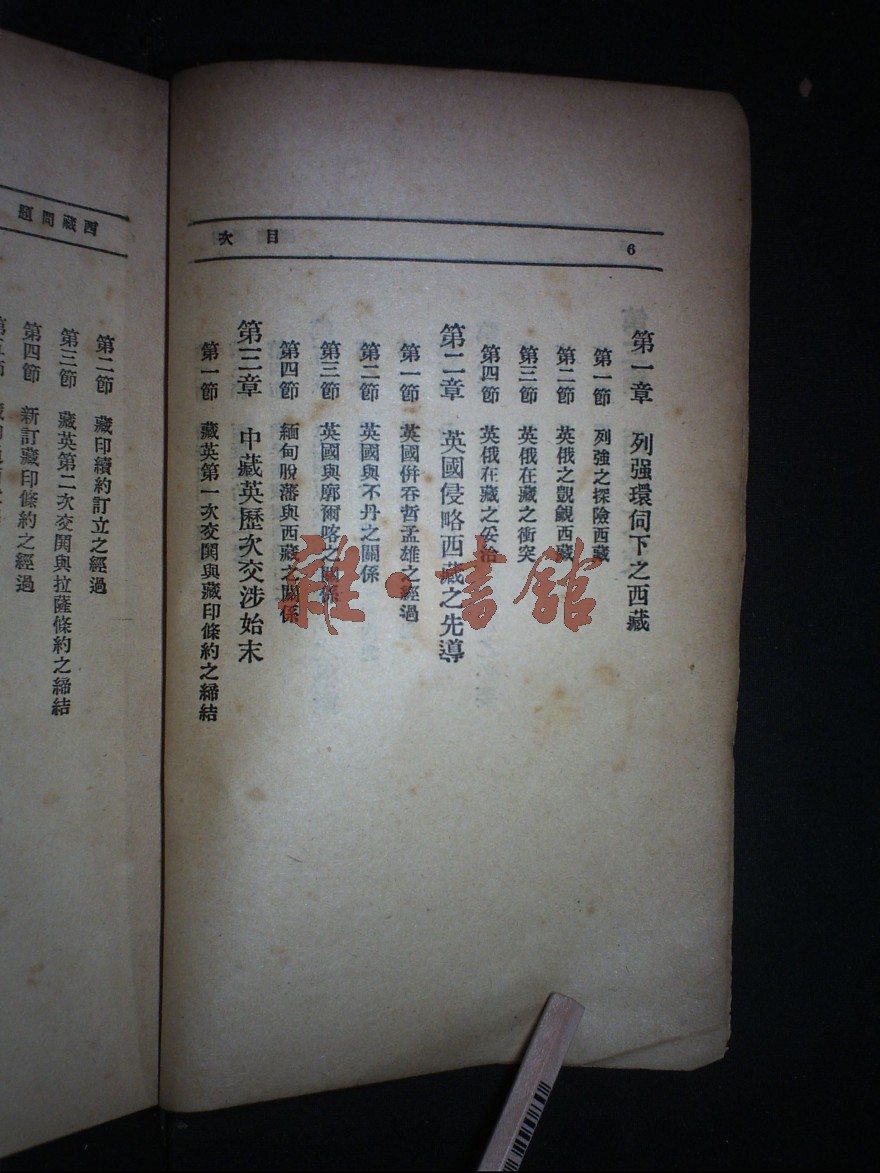 6
目次
第一章 列强環伺下之西藏
第一節 列强之探險西藏
第二節 英俄之覬覦西藏
第三節 英俄在藏之衝突
第四節 英俄在藏之妥洽
第二章 英國侵略西藏之先導
第一節 英國併吞哲孟雄之經過
第二節 英國與不丹之關係
第三節 英國與廓爾喀之關係
第四節 緬甸脫藩與西藏之關係
第三章 中藏英歷次交涉始末
第一節 藏英第一次交鬨與藏印條約之締結
西藏問題
第二節 藏印續約訂立之經過
第三節 藏英第二次交鬨與拉薩條約之締結
第四節 新訂藏印條約之經過
雜·書館